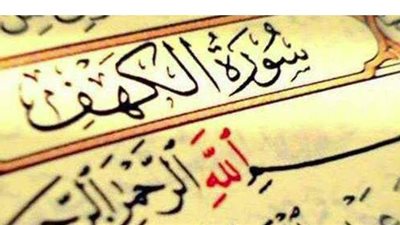 سُورَةُ الكَهْفِ
بِسْمِ ٱللَّهِ ٱلرَّحْمَٰنِ ٱلرَّحِيمِ